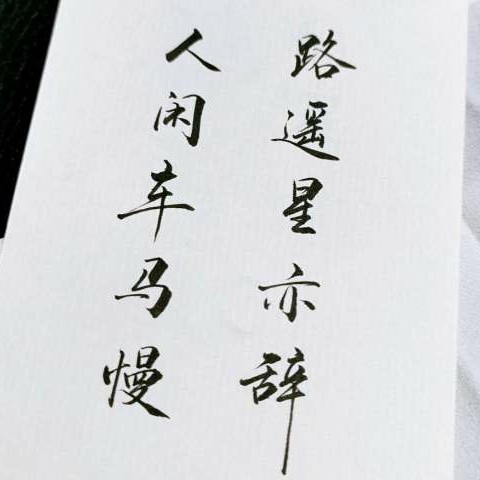 路遥星亦辞
人闲车马慢